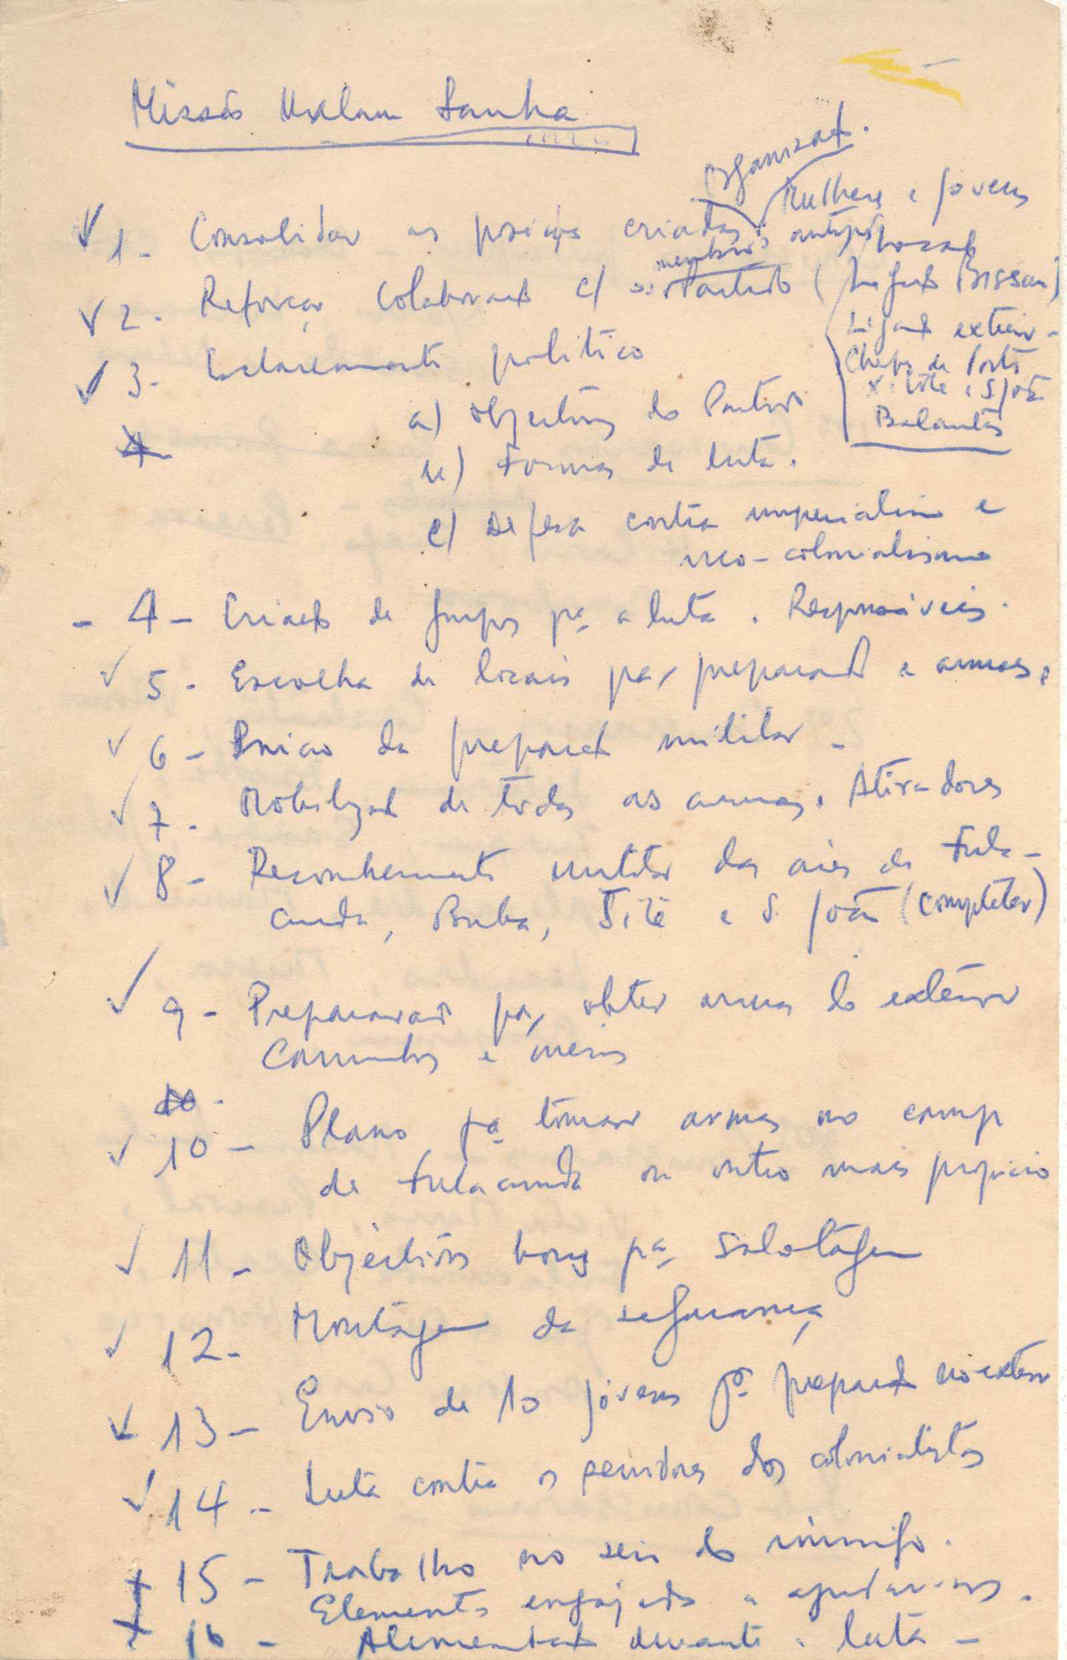 Missão Malam Sanha
organizaç.
Mulheres e jovens
1- Consolidar as posições criadas.
2- Reforçar colaboração c/ membros Partido (Ligação Bissau)
Ligação exterior
Chefes de
Tite e S. João
Balantas
3- Esclarecimento politico
a) Objectivos do Partido
b) Formas de luta.
c) Defesa contra imperialismo e
neo-colonialismo
4
- 4 - Criação de grupos pª a luta. Responsáveis.
5- Escolha de locais pª preparação e armas.
6- Inicio da preparação militar -
7- Mobilização de todas as armas. Atiradores
8- Reconhecimento militar das áreas de Fula-
cunda, Buba, Tite e S. João (completar)
9- Preparação pª obter armas do exterior
Caminhos e meios
10-
10- Plano pª tomar armas no camp
de Fulacunda ou outro mais propicio
11- Objectivos bons pª sabotagem
12- Montagem da segurança
13- Envio de 10 jóvens pª preparação no exterior
14- Luta contra os servidores dos colonialistas
15- Trabalho no seio do inimigo.
Elementos engajados a ajudar-nos.
16- Alimentação durante a luta -